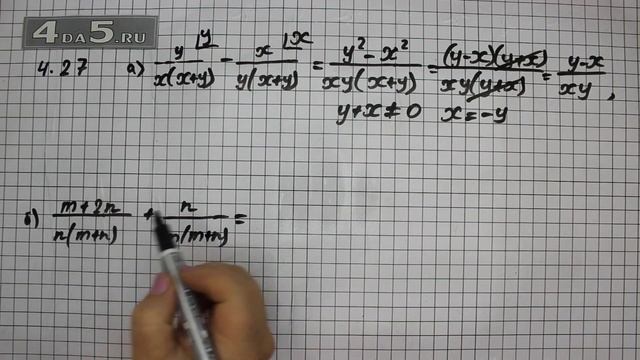 4DA5.RU
4.27 а) y/x(x+y) ⌊y − x/y(x+y) ⌊x = y²−x²/xy(x+y) = (y−x)(y+x)/xy(y+x) = y−x/xy ,
y+x≠0 x=−y
б) m+2n/n(m+n) + n/(m+n) =